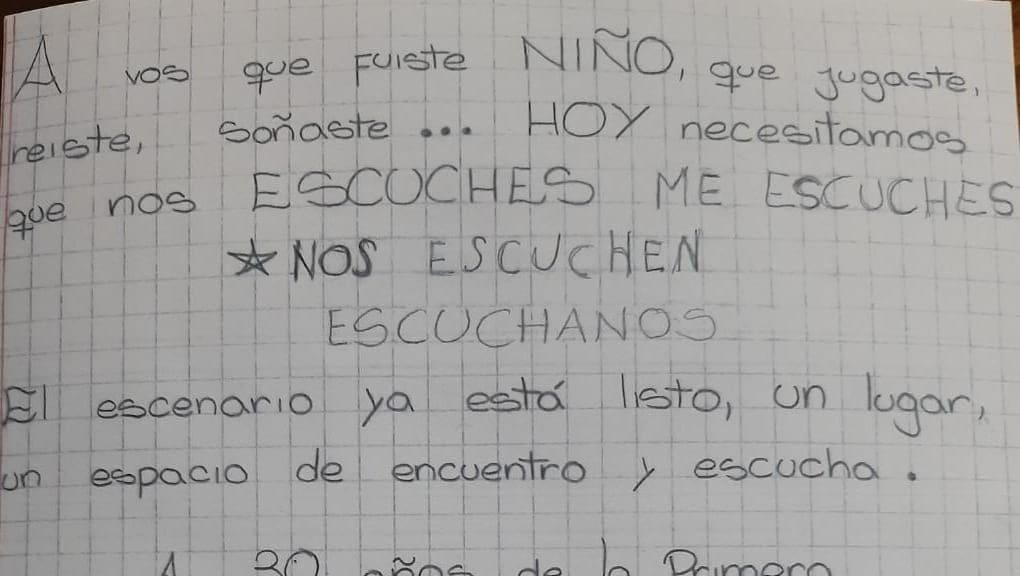 A vos que fuiste NIÑO, que jugaste,
reiste, soñaste ... HOY necesitamos
que nos ESCUCHES ME ESCUCHES
☆ NOS ESCUCHEN
ESCUCHANOS
El escenario ya está listo, un lugar,
un espacio de encuentro y escucha.
A 30 años de la Primera